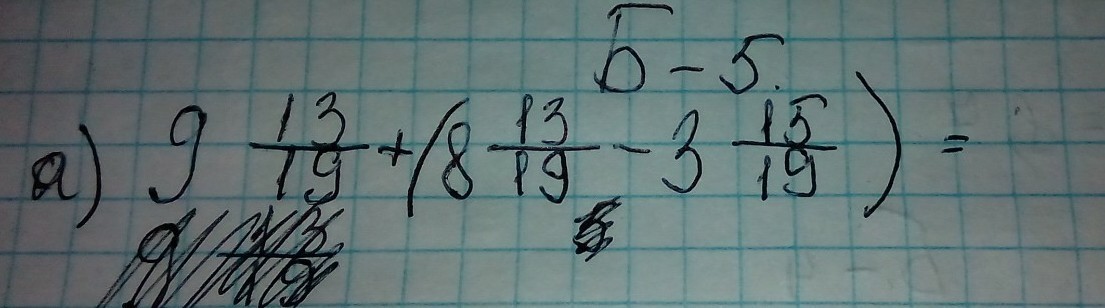 Б - 5.
а) 9 13/19 + (8 13/19 - 3 15/19) =